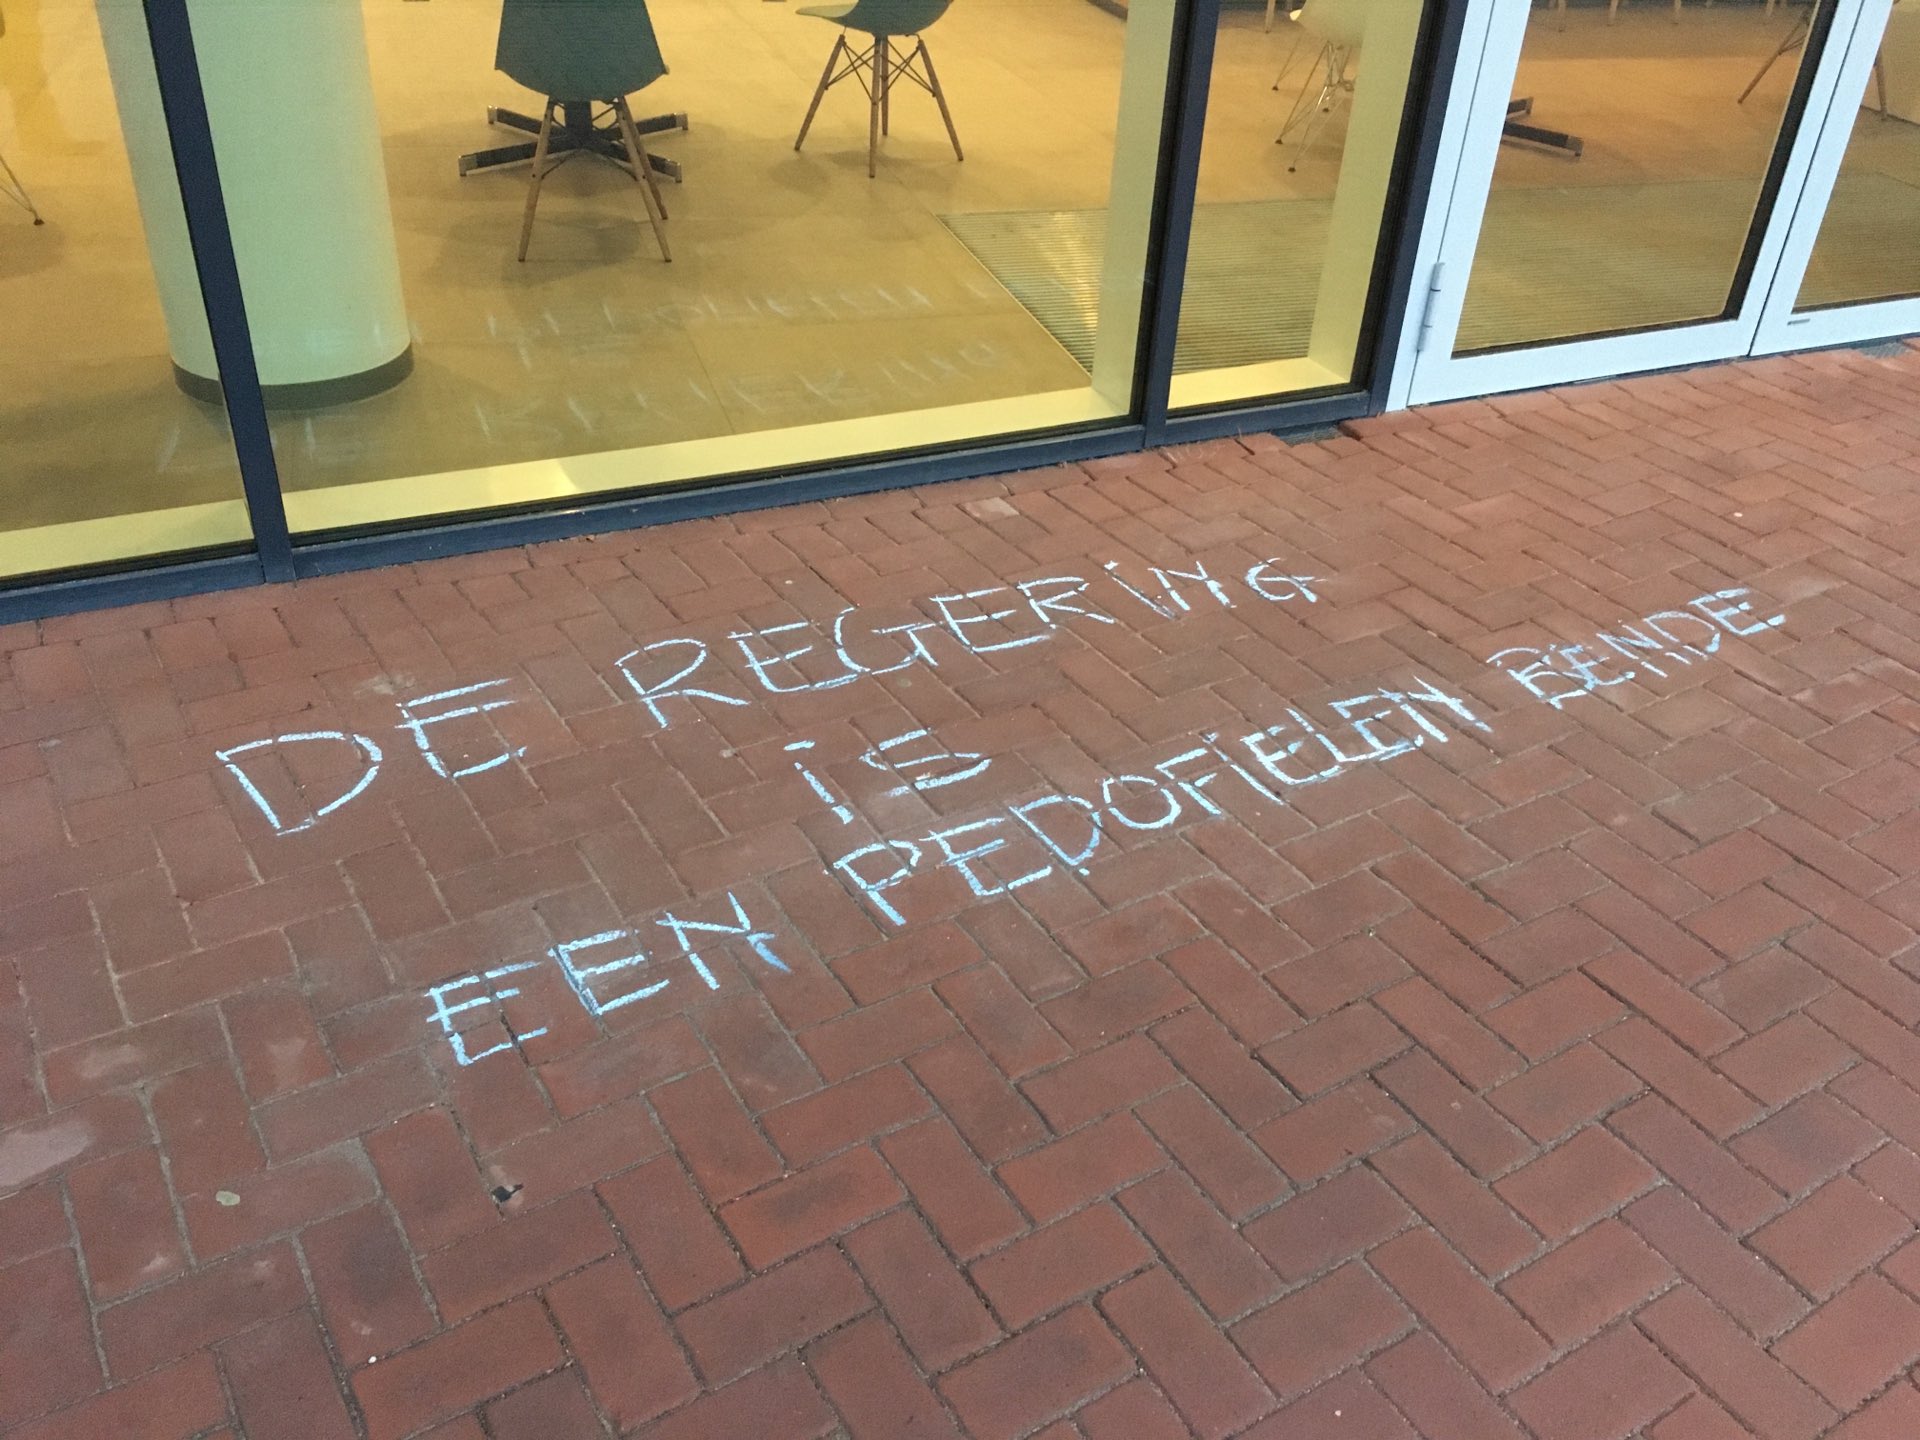 DE REGERING
IS
EEN PEDOFIELEN BENDE